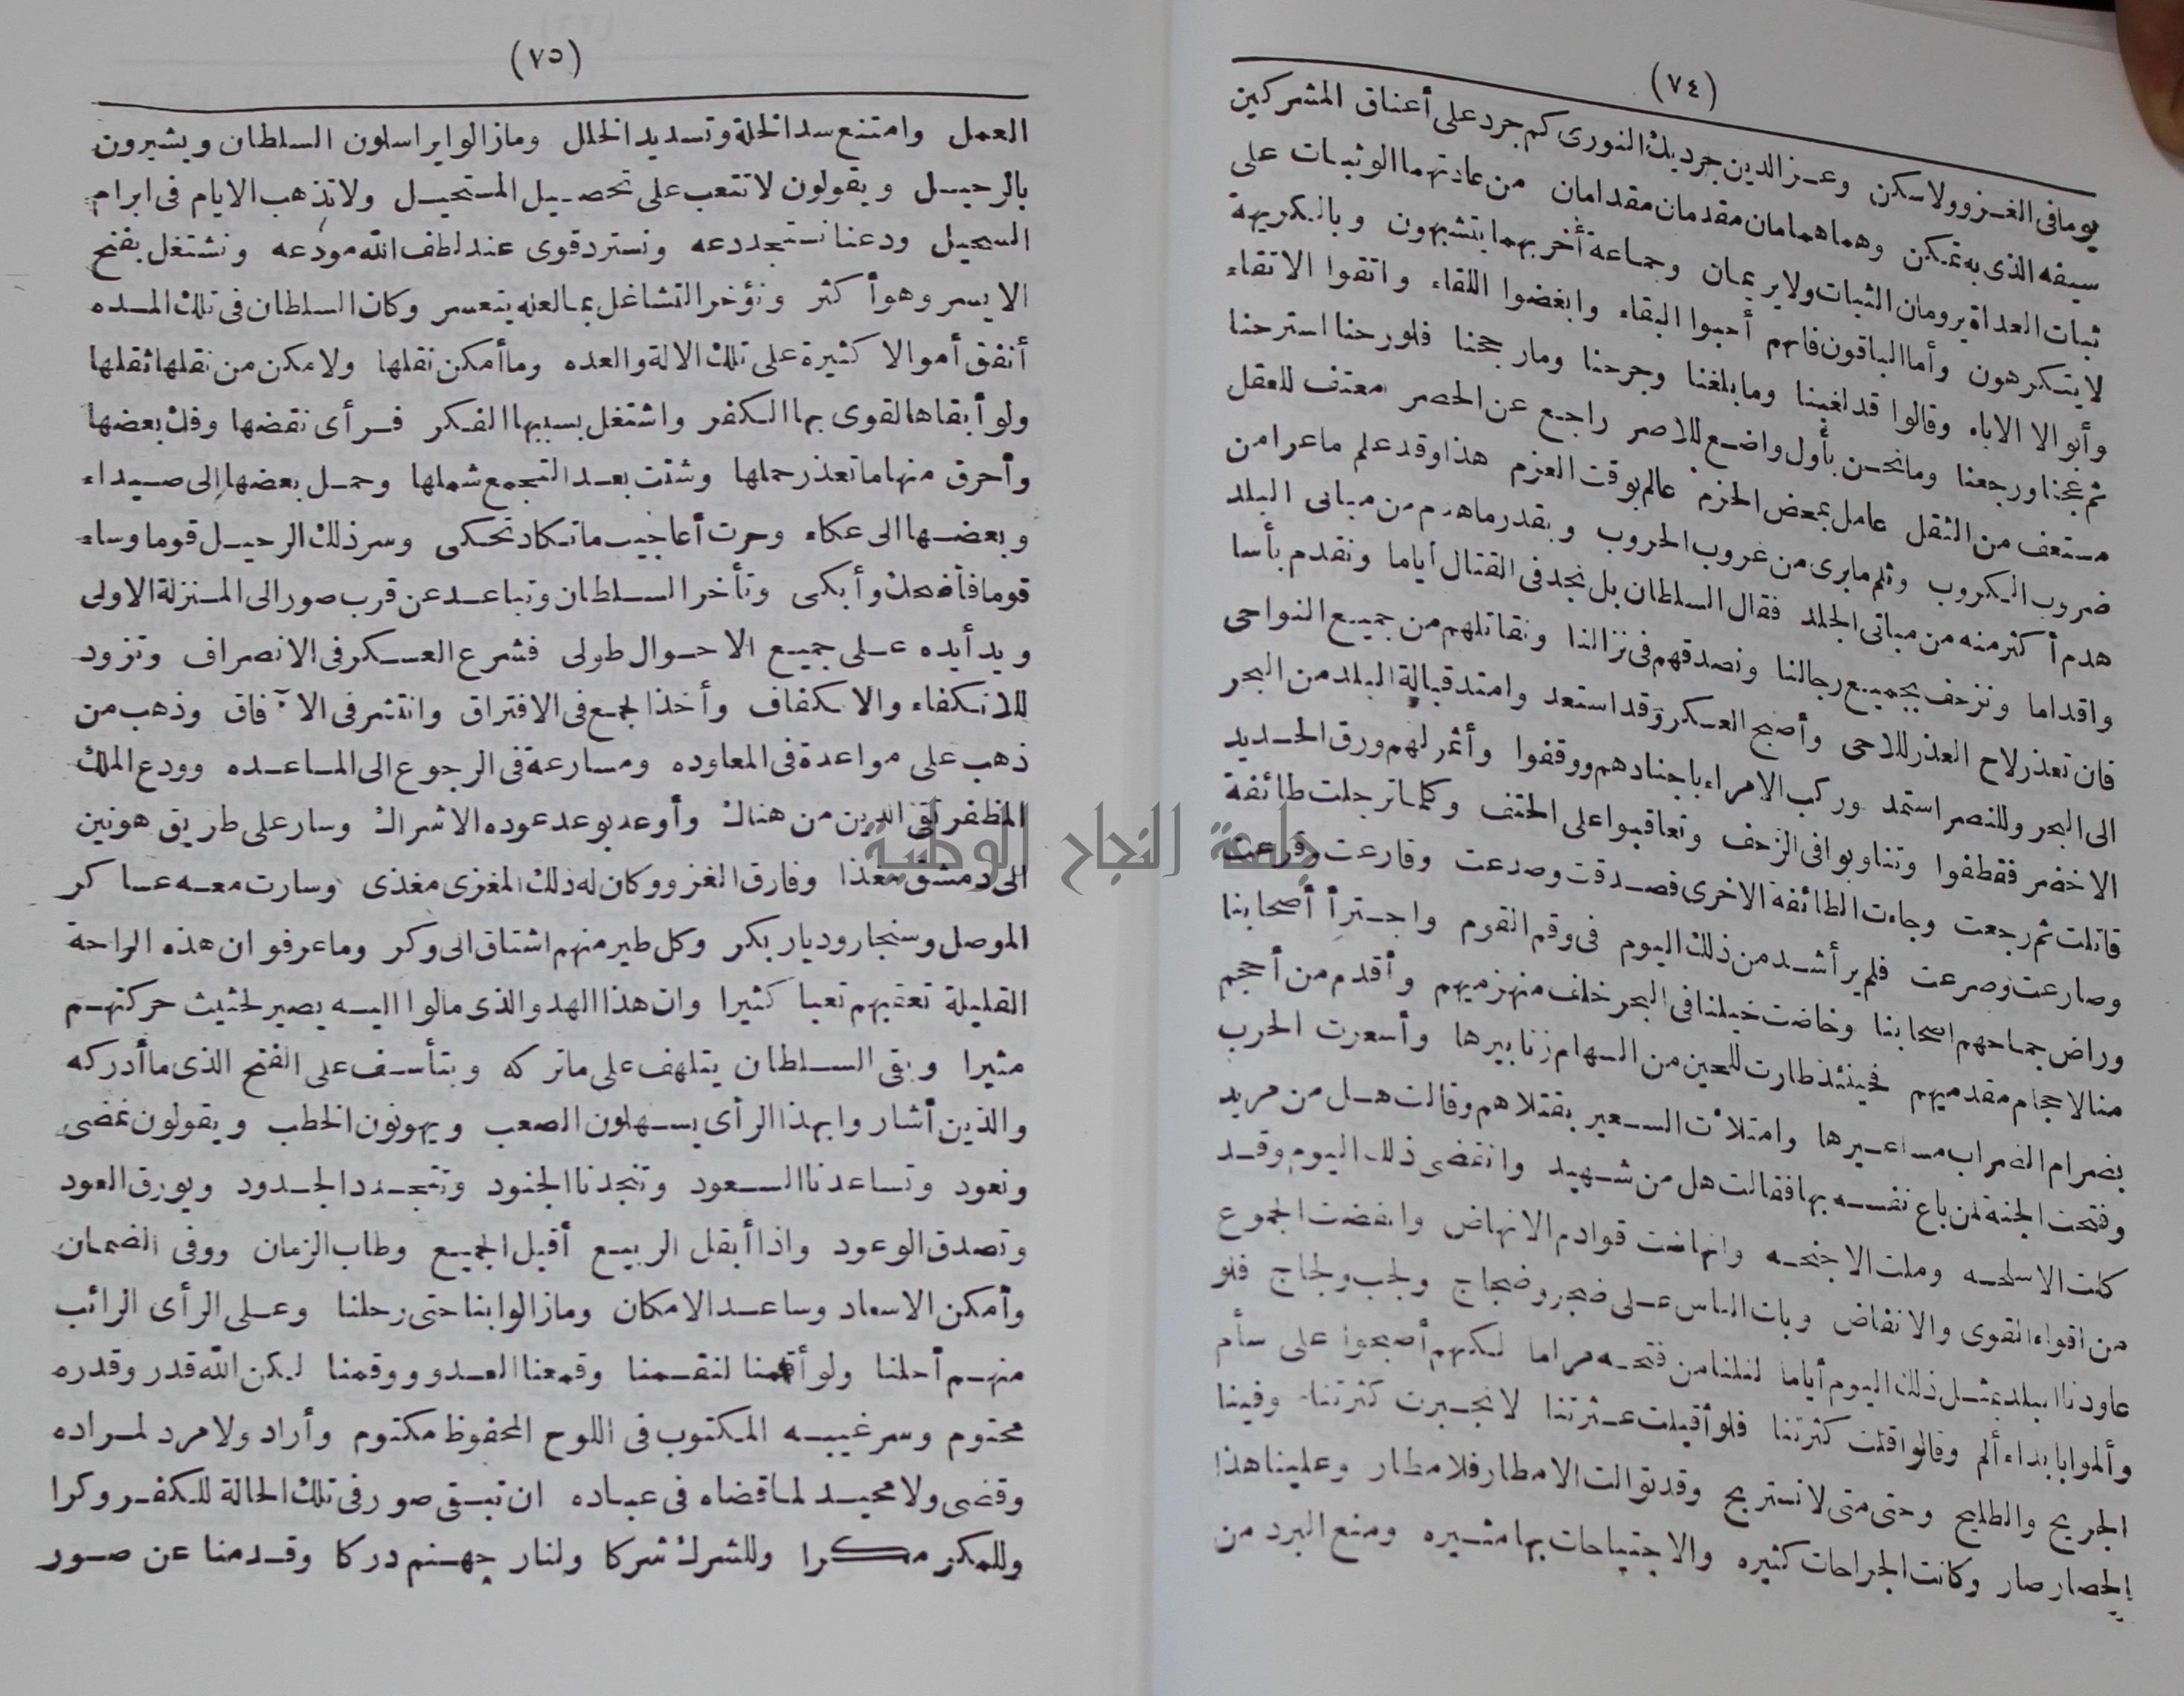 (٧٤)
يوما فى الغزو ولا سكن وعز الدين جرديك النورى كم جرد على أعناق المشركين
سيفه الذى به تمكن وهما همامان مقدمان مقدامان من عادتهما الوثبات على
ثبات العداة يرومان الثبات ولا يريمان وجماعة أخر بهما يتشبهون وبالكريهة
لا يتكرهون وأما الباقون فانهم أحبوا البقاء وابغضوا اللقاء واتقوا الاتقاء
وأبوا الا الاباء وقالوا قد لغبنا وما بلغنا وجرحنا وما رجحنا فلو رحنا استرحنا
ثم عجنا ورجعنا وما نحن بأول واضع للاصر راجع عن الحصر معتف للعقل
مستعف من الثقل عامل بمحض الحزم عالم بوقت العزم هذا وقد علم ما عرا من
ضروب الكروب وثلم ما برى من غروب الحروب وبقدر ما هدم من مبانى البلد
هدم أكثر منه من مبانى الجلد فقال السلطان بل نجد فى القتال أياما ونقدم بأسا
واقداما ونزحف بجميع رجالنا ونصدقهم فى نزالنا ونقاتلهم من جميع النواحى
فان تعذر لاح العذر للاحى وأصبح العسكر وقد استعد وامتد قبالة البلد من البحر
الى البحر وللنصر استمد وركب الامراء باجنادهم ووقفوا وأثمر لهم ورق الحديد
الاخضر فقطفوا وتناوبوا فى الزحف وتعاقبوا على الحتف وكلما ترجلت طائفة
قاتلت ثم رجعت وجاءت الطائفة الاخرى فصدقت وصدعت وقارعت وقرعت
وصارعت وصرعت فلم ير أشد من ذلك اليوم فى وقم القوم واجترأ أصحابنا
وراض جماحهم اصحابنا وخاضت خيلنا فى البحر خلف منهزميهم وأقدم من أحجم
منا لاحجام مقدميهم فحينئذ طارت للحين من السهام زنابيرها وأسعرت الحرب
بضرام الضراب مساعيرها وامتلأت السعير بقتلاهم وقالت هل من مزيد
وفتحت الجنة لمن باع نفسه بها فقالت هل من شهيد وانقضى ذلك اليوم وقد
كلت الاسلحه وملت الاجنحه وانهاضت قوادم الانهاض وانفضت الجموع
من اقواء القوى والانفاض وبات الناس على ضجر وضجاج ولجب ولجاج فلو
عاودنا البلد بمثل ذلك اليوم أياما لنلنا من فتحه مراما لكنهم أصبحوا على سأم
وألموا بابداء ألم وقالوا قلت كثرتنا فلو أقيلت عثرتنا لانجبرت كثرتنا وفينا
الجريح والطليح وحتى متى لا نستريح وقد توالت الامطار فلا مطار وعلينا هذا
الحصار صار وكانت الجراحات كثيره والاجتياحات بها مثيره ومنع البرد من
(٧٥)
العمل وامتنع سد الخلة وتسديد الخلل ومازالوا يراسلون السلطان ويشيرون
بالرحيل ويقولون لا تتعب على تحصيل المستحيل ولا تذهب الايام فى ابرام
السحيل ودعنا نستجد دعه ونسترد قوى عند لطف الله مودعه ونشتغل بفتح
الايسر وهو أكثر ونؤخر التشاغل بما لعله يتعسر وكان السلطان فى تلك المده
أنفق أموالا كثيرة على تلك الالة والعده وما أمكن نقلها ولا مكن من نقلها ثقلها
ولو أبقاها لقوى بها الكفر واشتغل بسببها الفكر فرأى نقضها وفك بعضها
وأحرق منها ما تعذر حملها وشتت بعد التجمع شملها وحمل بعضها إلى صيداء
وبعضها الى عكاء وجرت أعاجيب ما تكاد تحكى وسر ذلك الرحيل قوما وساء
قوما فأضحك وأبكى وتأخر السلطان وتباعد عن قرب صور الى المنزلة الاولى
ويد أيده على جميع الاحوال طولى فشرع العسكر فى الانصراف وتزود
للانكفاء والانكفاف وأخذ الجمع فى الافتراق وانتشر فى الآفاق وذهب من
ذهب على مواعدة فى المعاوده ومسارعة فى الرجوع الى المساعده وودع الملك
المظفر تقى الدين من هناك وأوعد بوعد عوده الاشراك وسار على طريق هونين
الى دمشق مغذا وفارق الغزو وكان له ذلك المغزى مغذى وسارت معه عساكر
الموصل وسنجار وديار بكر وكل طير منهم اشتاق الى وكر وما عرفوا ان هذه الراحة
القليلة تعقبهم تعبا كثيرا وان هذا الهدو الذى مالوا اليه يصير لحثيث حركتهم
مثيرا وبقى السلطان يتلهف على ما تركه ويتأسف على الفتح الذى ما أدركه
والذين أشاروا بهذا الرأى يسهلون الصعب ويهونون الخطب ويقولون نمضى
ونعود وتساعدنا السعود وتنجدنا الجنود وتتجدد الجدود ويورق العود
وتصدق الوعود واذا أبقل الربيع أقبل الجميع وطاب الزمان ووفى الضمان
وأمكن الاسعاد وساعد الامكان ومازالوا بنا حتى رحلنا وعلى الرأى الرائب
منهم أحلنا ولو أقمنا لنقمنا وقمعنا العدو ووقمنا لكن الله قدر وقدره
محتوم وسر غيبه المكتوب فى اللوح المحفوظ مكتوم وأراد ولا مرد لمراده
وقضى ولا محيد لما قضاه فى عباده ان تبقى صور فى تلك الحالة للكفر وكرا
وللمكر مكرا وللشرك شركا ولنار جهنم دركا وقدمنا عن صور
جامعة النجاح الوطنية